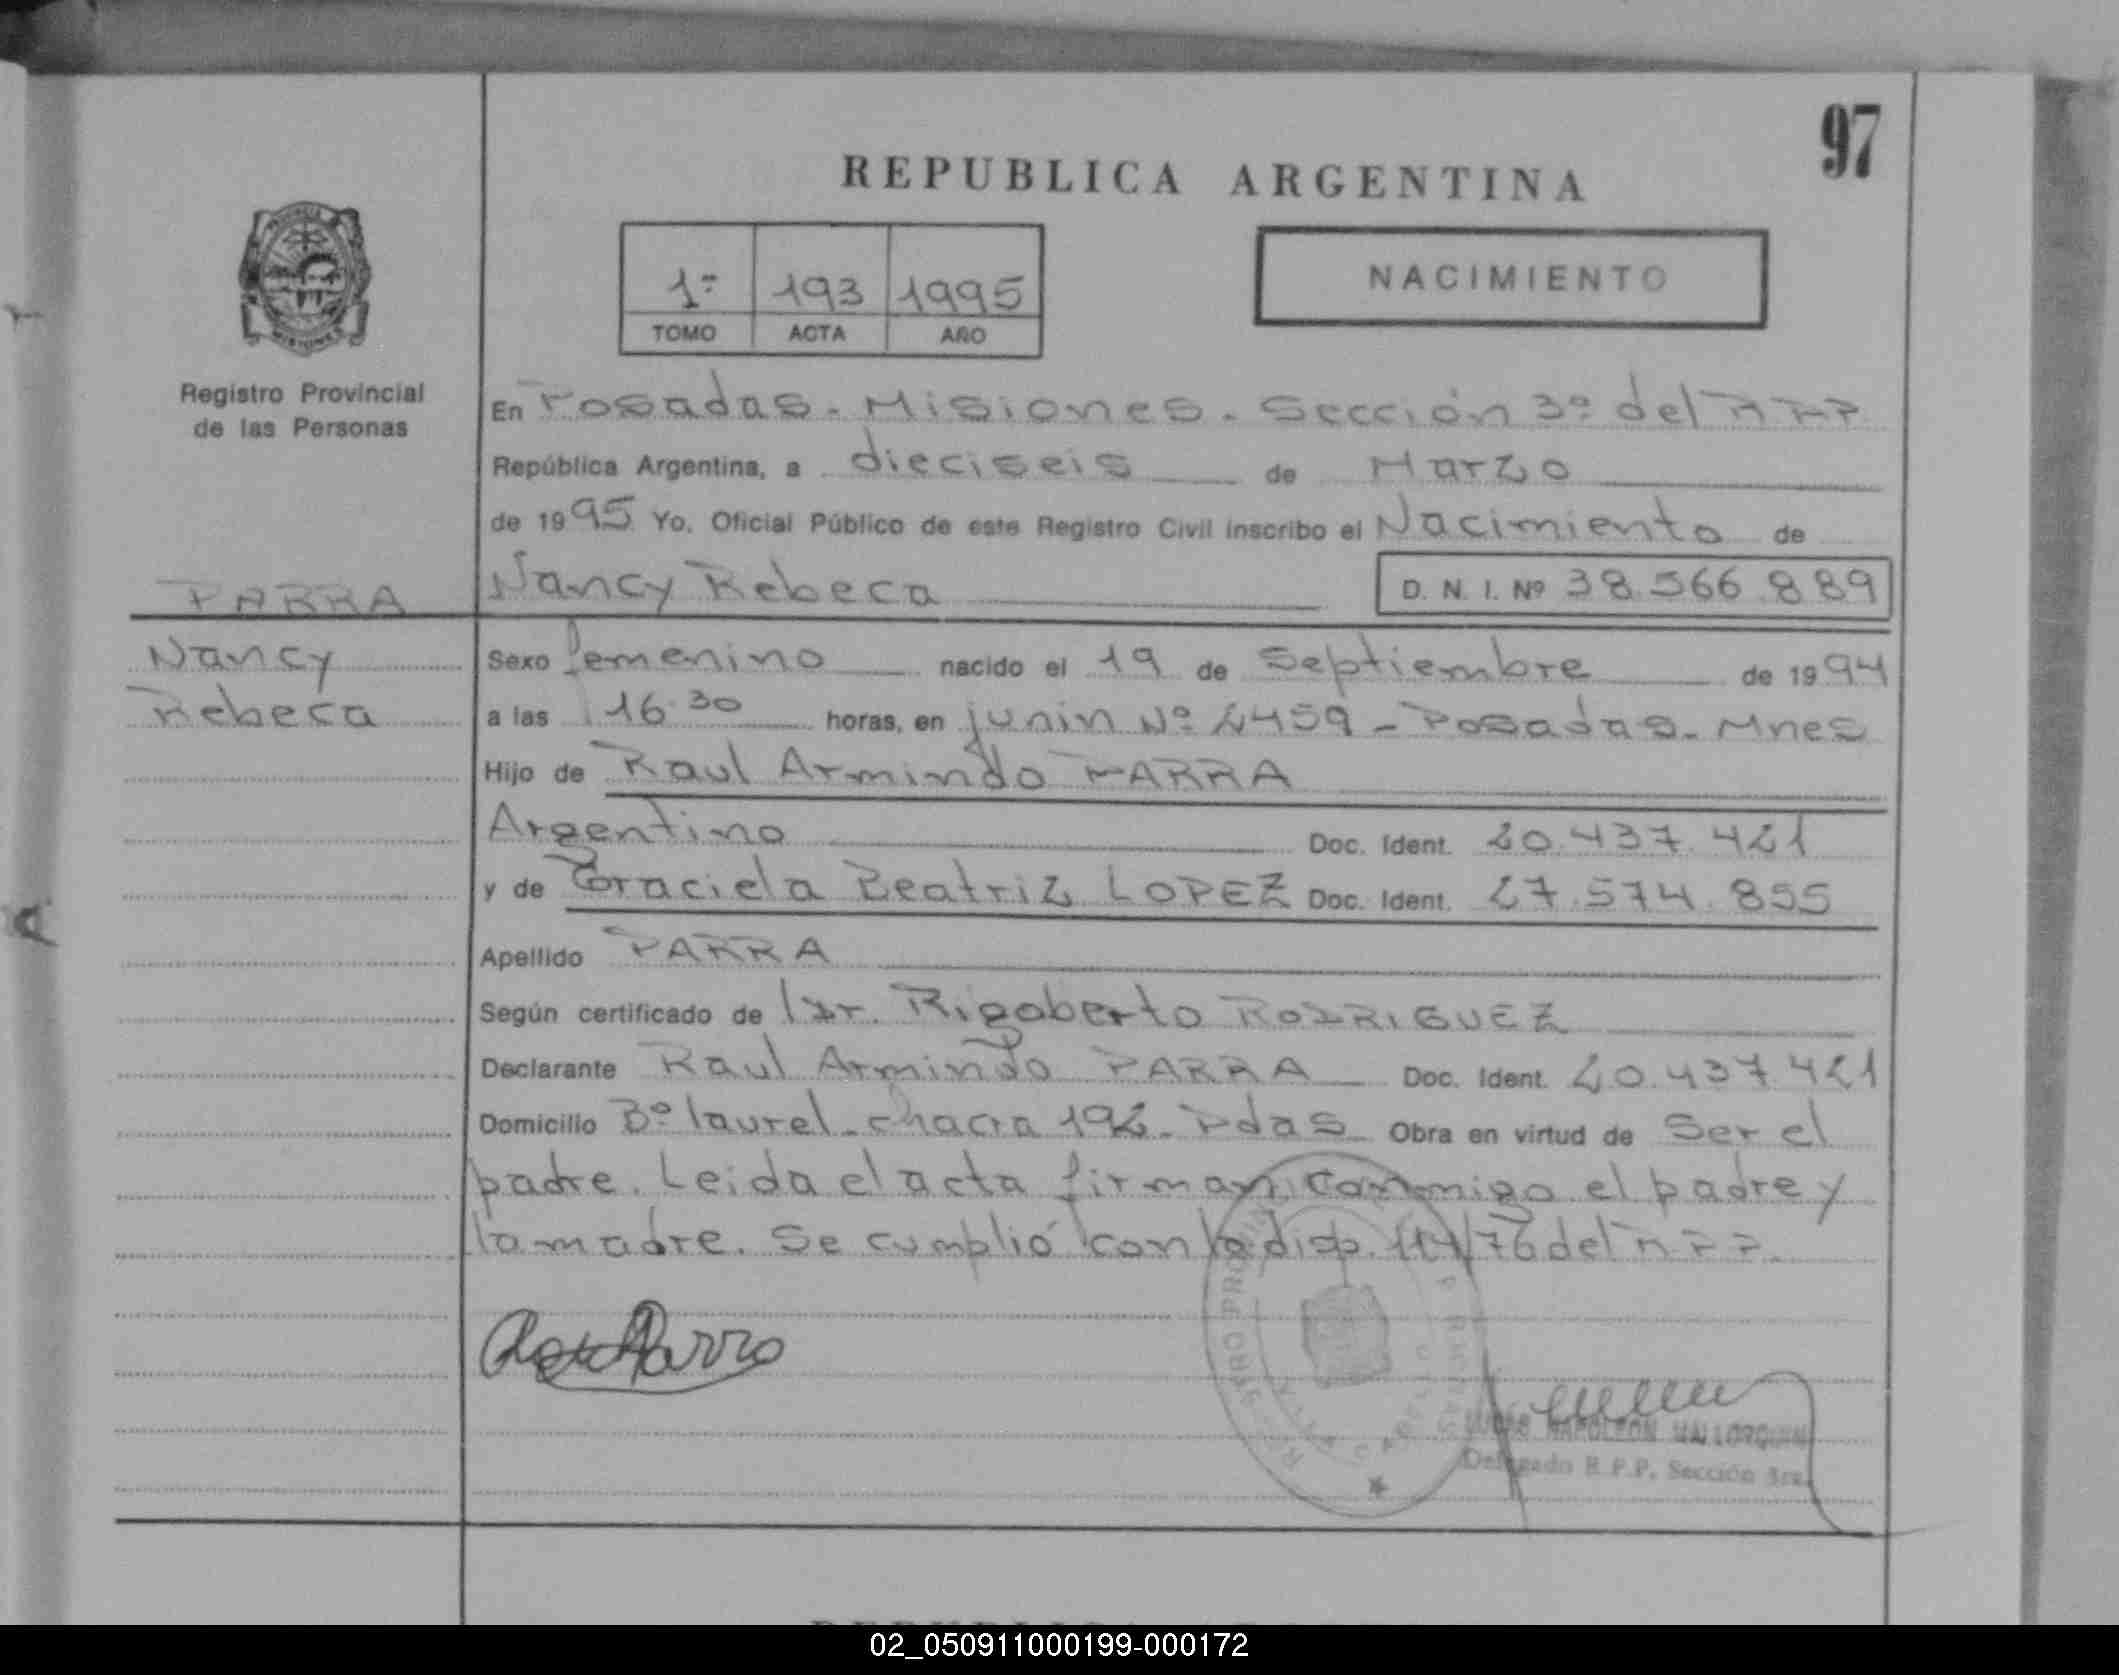 97
REPUBLICA ARGENTINA
1º 193 1995
TOMO ACTA AÑO
NACIMIENTO
Registro Provincial
de las Personas
En Posadas - Misiones - Sección 3º del RPP
República Argentina, a dieciseis de Marzo
de 1995 Yo, Oficial Público de este Registro Civil inscribo el Nacimiento de
PARRA Nancy Rebeca D. N. I. Nº 38.566.889
Nancy Sexo femenino nacido el 19 de Septiembre de 1994
Rebeca a las 16.30 horas, en junin Nº 2459 - Posadas - Mnes
Hijo de Raul Armindo PARRA
Argentino Doc. Ident. 20.437.421
y de Graciela Beatriz LOPEZ Doc. Ident. 27.574.855
Apellido PARRA
Según certificado de Dr. Rigoberto RODRIGUEZ
Declarante Raul Armindo PARRA Doc. Ident. 20.437.421
Domicilio Bº laurel - chacra 192 - Pdas Obra en virtud de Ser el
padre. Leida el acta firman conmigo el padre y
la madre. Se cumplió con la disp. 114/76 del RPP.
Parra
NAPOLEON MALLORQUIN
Delegado R.P.P. Sección 3ra.
02_050911000199-000172